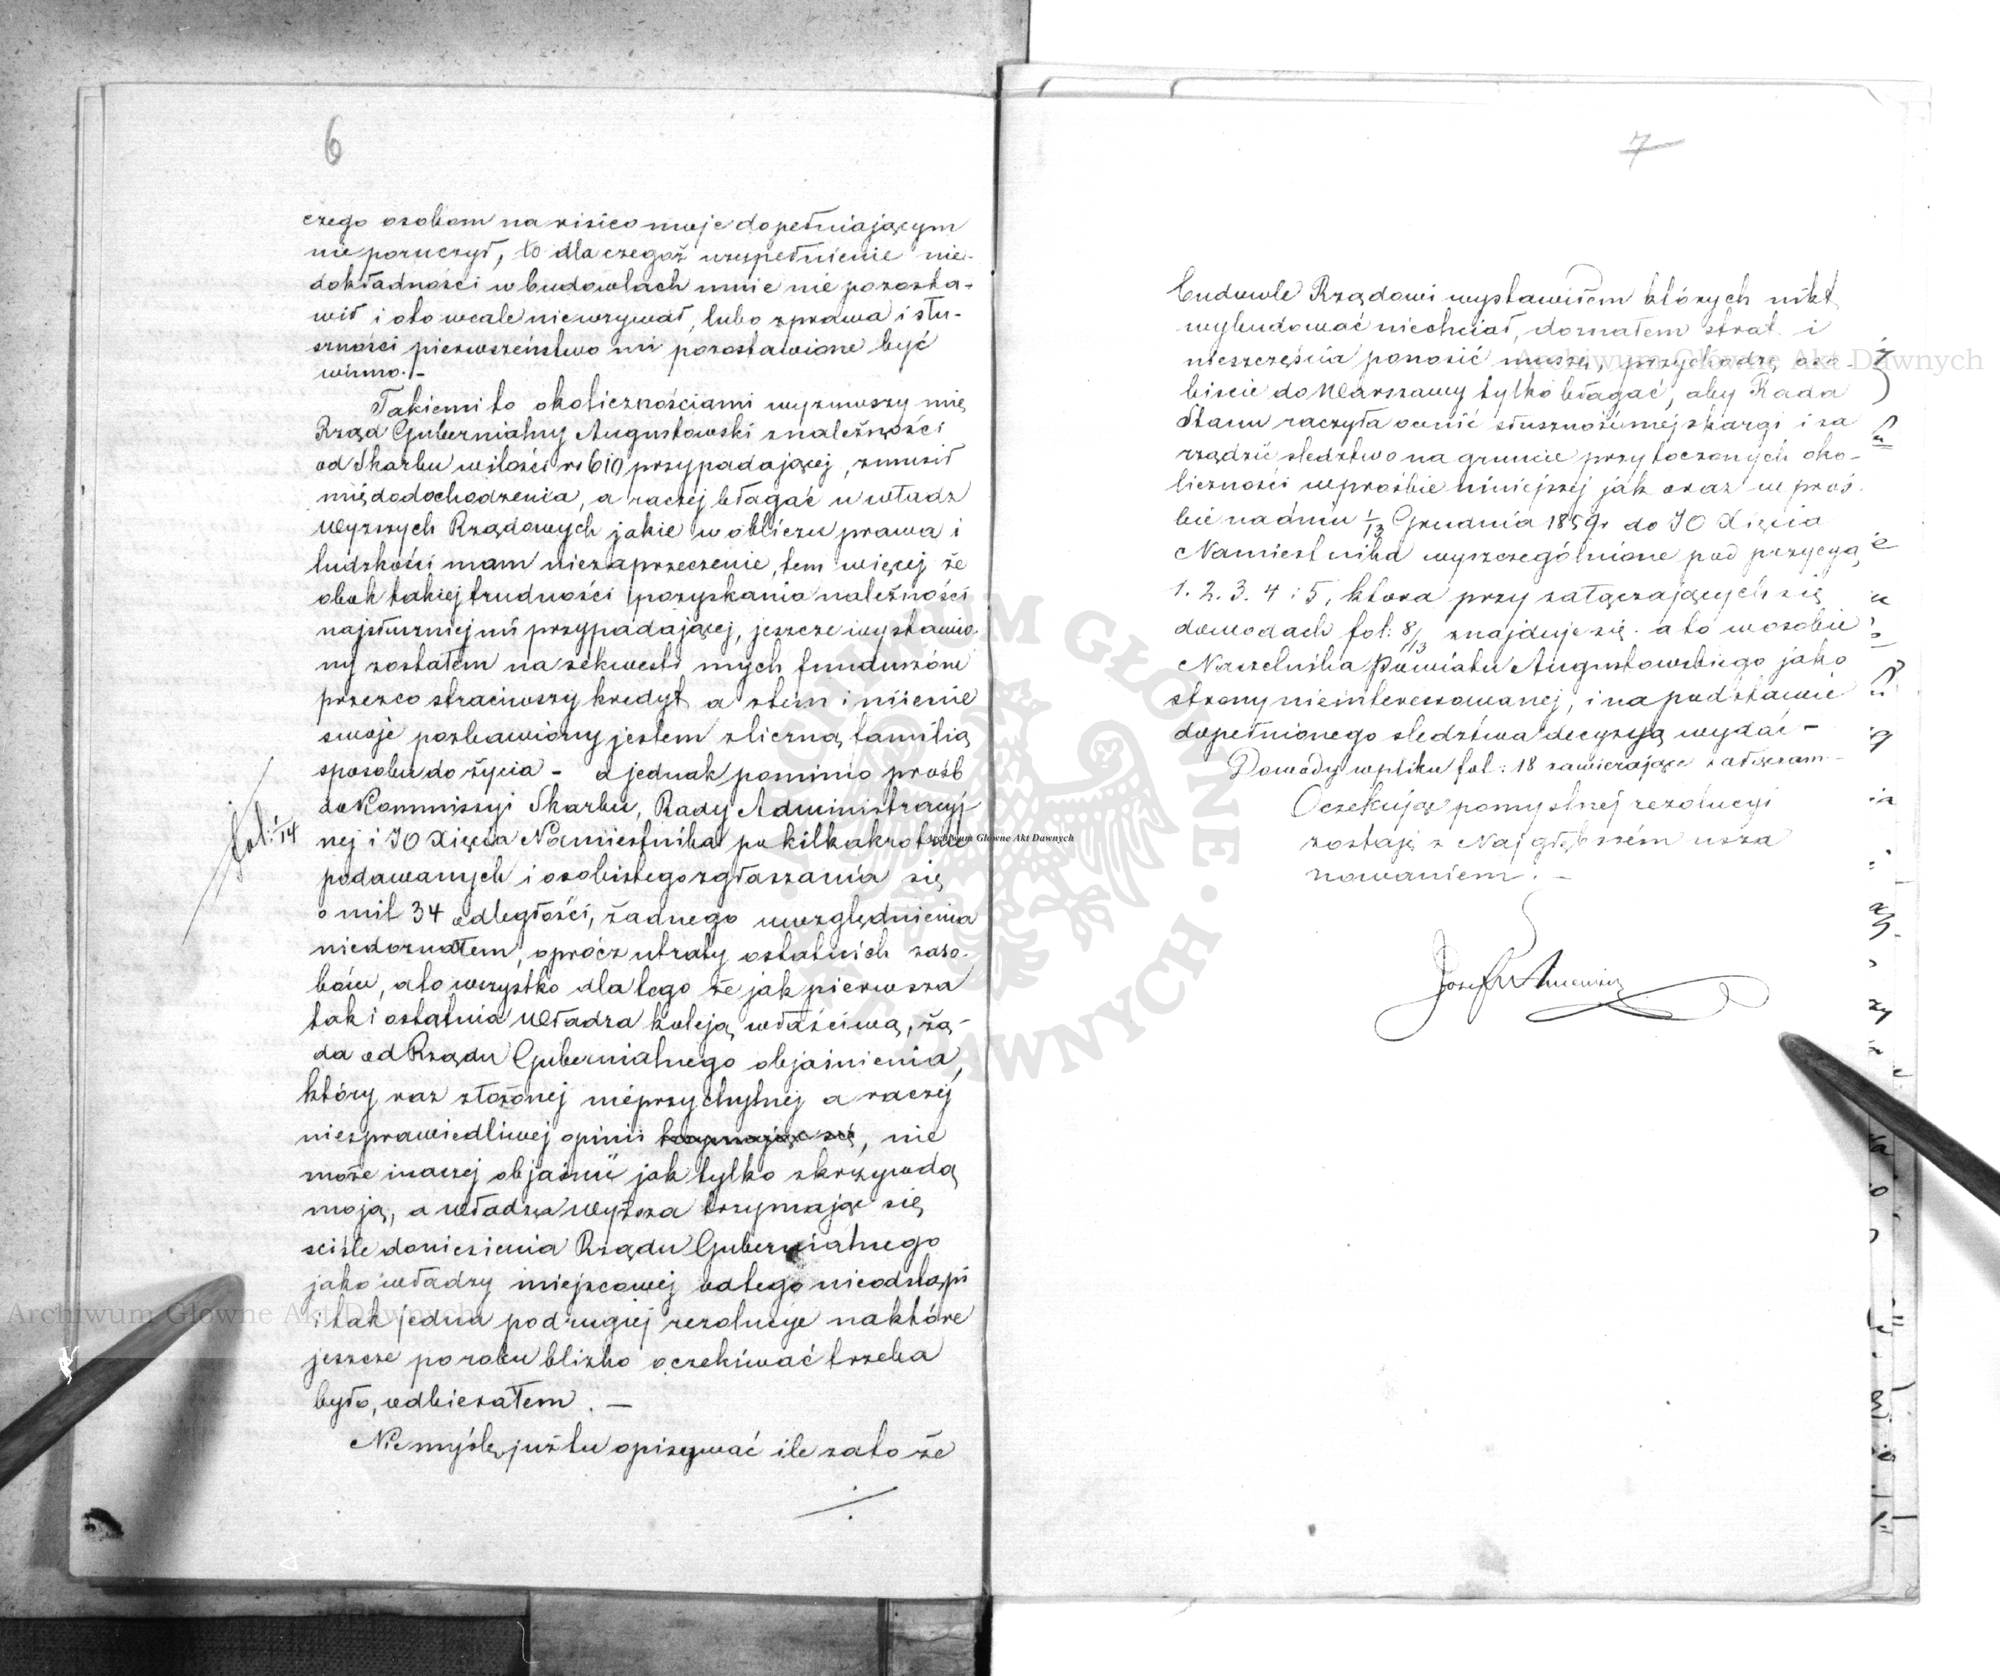 6
czego osobom na risico moje dopełniającym
nie poruczył, to dla czegoż uzupełnienie nie-
dokładności w budowlach mnie nie pozosta-
wił i oto wcale niewzywał, lubo z prawa i słu-
szności pierwszeństwo mi pozostawione być
winno. –
Takiemi to okolicznościami wyzuwszy mię
Rząd Gubernialny Augustowski z należności
od Skarbu w ilości rs 610 przypadającej, zmusił
mię do dochodzenia, a raczej błagać u władz
wyższych Rządowych jakie w obliczu prawa i
ludzkości mam niezaprzeczenie, tem więcej że
obok takiej trudności pozyskania należności
najsłuszniej mi przypadającej, jeszcze i wystawio-
ny zostałem na sekwestr mych funduszów
przez co straciwszy kredyt a z tem i mienie
swoje pozbawiony jestem z liczną familią
sposobu do życia – a jednak pomimo prośb
do Kommissyi Skarbu, Rady Administracyj
fol: 1/14
nej i JO Xięcia Namiestnika po kilkakrotnie
podawanych i osobistego zgłaszania się
o mil 34 odległości, żadnego uwzględnienia
niedoznałem, oprócz utraty ostatnich zaso-
bów, a to wszystko dla tego że jak pierwsza
tak i ostatnia Władza koleją właściwą, żą-
da od Rządu Gubernialnego objaśnienia,
który raz złożonej nieprzychylnej a raczej
niesprawiedliwej opinii trzymając się, nie
może inaczej objaśnić jak tylko z krzywdą
moją, a władza wyższa trzymając się
ściśle doniesienia Rządu Gubernialnego
jako władzy miejscowej od tego nieodstąpi
i tak jedna po drugiej rezolucye na które
jeszcze po roku blizko oczekiwać trzeba
było, odbierałem. –
Nie myślę już tu opisywać ile za to że
7
budowle Rządowi wystawiłem których nikt
wybudować niechciał, doznałem strat i
nieszczęścia ponosić muszę, przychodzę oso-
biście do Warszawy tylko błagać, aby Rada
Stanu raczyła ocenić słuszność mej skargi i za
rządzić śledztwo na gruncie przytoczonych oko-
liczności w prośbie niniejszej jak oraz w proś-
bie na dniu 1/13 Grudnia 1859 r do JO Xięcia
Namiestnika wyszczególnione pod pozycyą
1. 2. 3. 4 i 5, która przy załączających się
dowodach fol: 8/13 znajduje się. a to w osobie
Naczelnika Powiatu Augustowskiego jako
strony nieinteressowanej, i na podstawie
dopełnionego śledztwa decyzyą wydać –
Dowody w pliku fol: 18 zawierające załączam –
Oczekując pomyślnej rezolucyi
zostaję z Najgłębszém usza
nowaniem. –
Archiwum Główne Akt Dawnych
Archiwum Główne Akt Dawnych
Archiwum Główne Akt Dawnych
ARCHIWUM GŁÓWNE AKT DAWNYCH